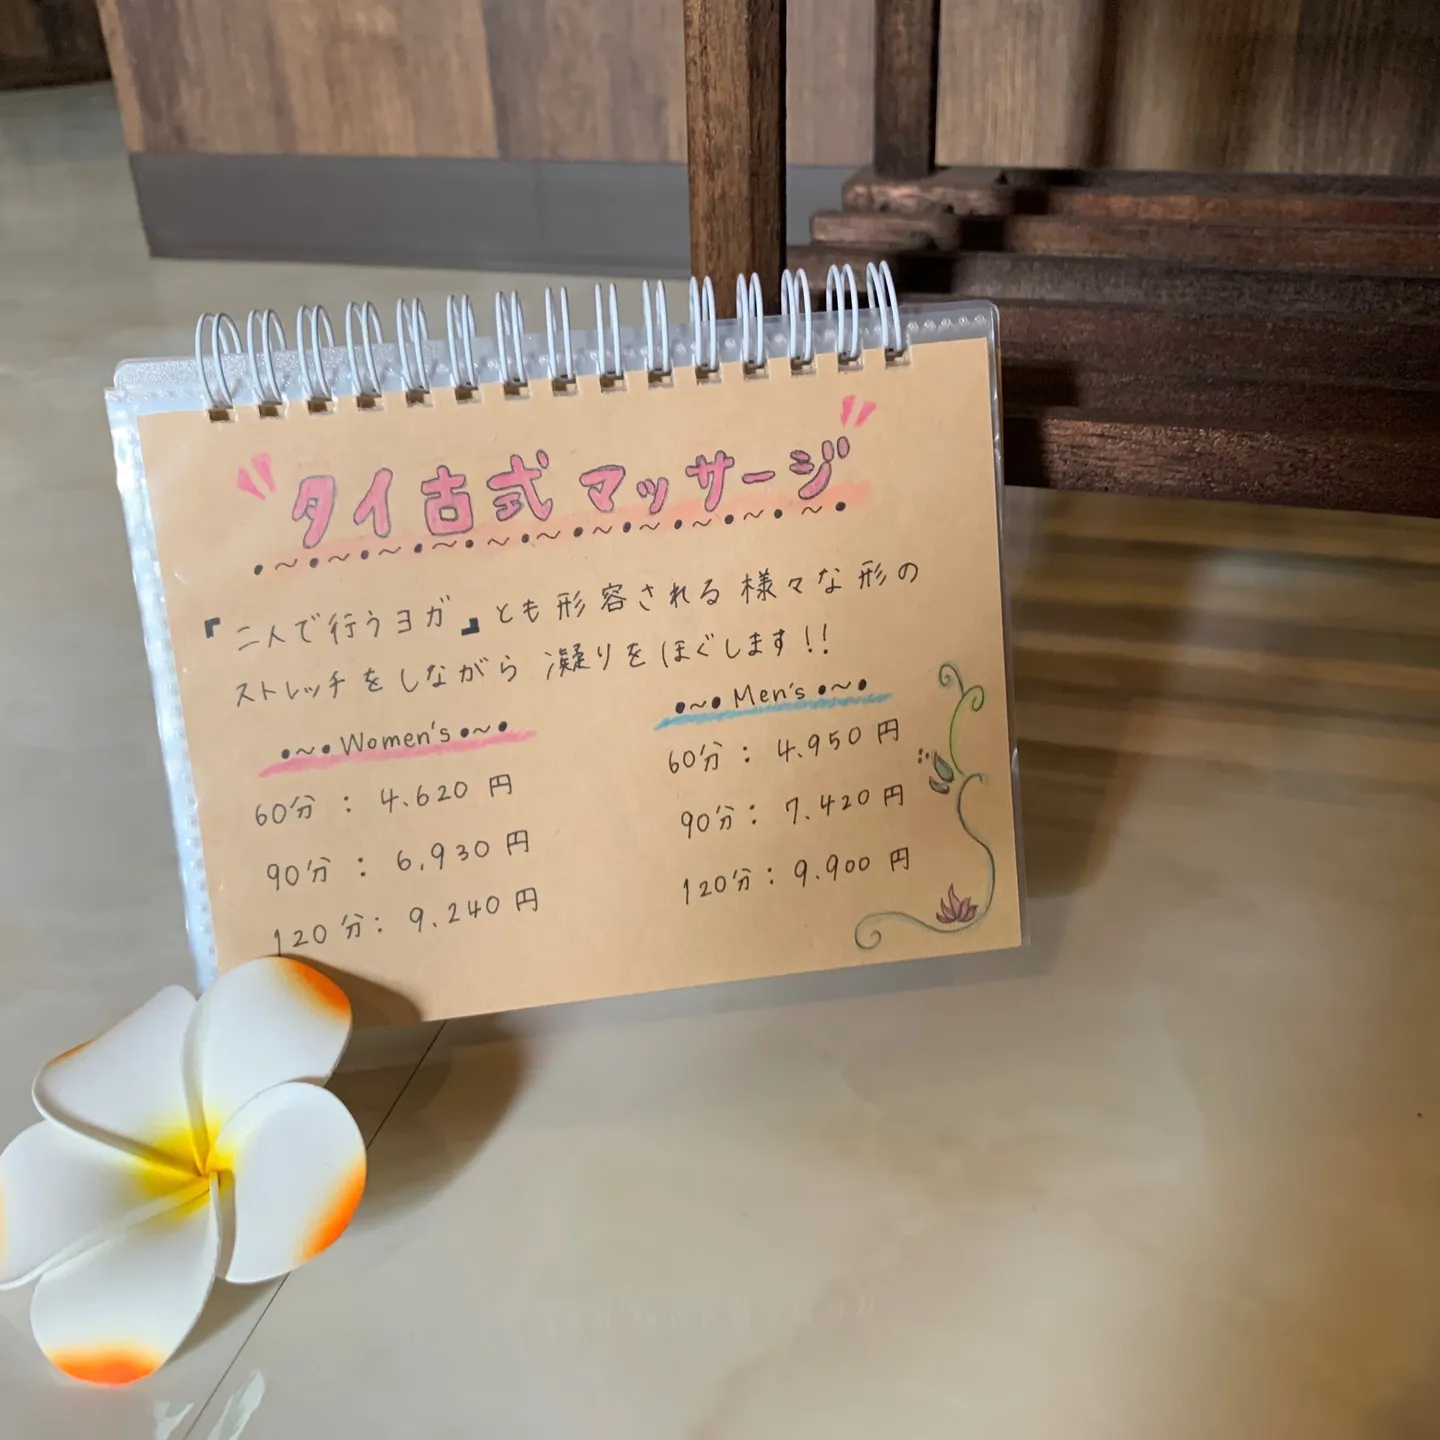 タイ古式マッサージ
『二人で行うヨガ』とも形容される様々な形の
ストレッチをしながら凝りをほぐします!!
•~•Women's•~•
60分: 4.620円
90分: 6,930円
120分: 9.240円
•~•Men's•~•
60分: 4.950円
90分: 7.420円
120分: 9.900円